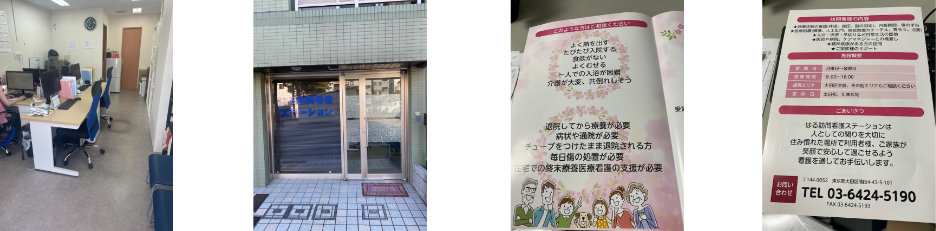 訪問看護
ステーション
このような方はご相談ください
よく熱を出す
たびたび入院する
食欲がない
よくむせる
一人での入浴が困難
介護が大変、共倒れしそう
退院してから療養が必要
病状や通院が必要
チューブをつけたまま退院される方
毎日傷の処置が必要
在宅での終末療養医療看護の支援が必要
訪問看護の内容
施設概要
営業日 月曜日~金曜日
営業時間 9:00~18:00
定休日 土日祝、年末年始
ごあいさつ
はる訪問看護ステーションは
人としての関りを大切に
住み慣れた場所で利用者様、ご家族が
笑顔で安心して過ごせるよう
看護を通してお手伝いします。
お問い
合わせ
TEL 03-6424-5190
FAX 03-6424-5193